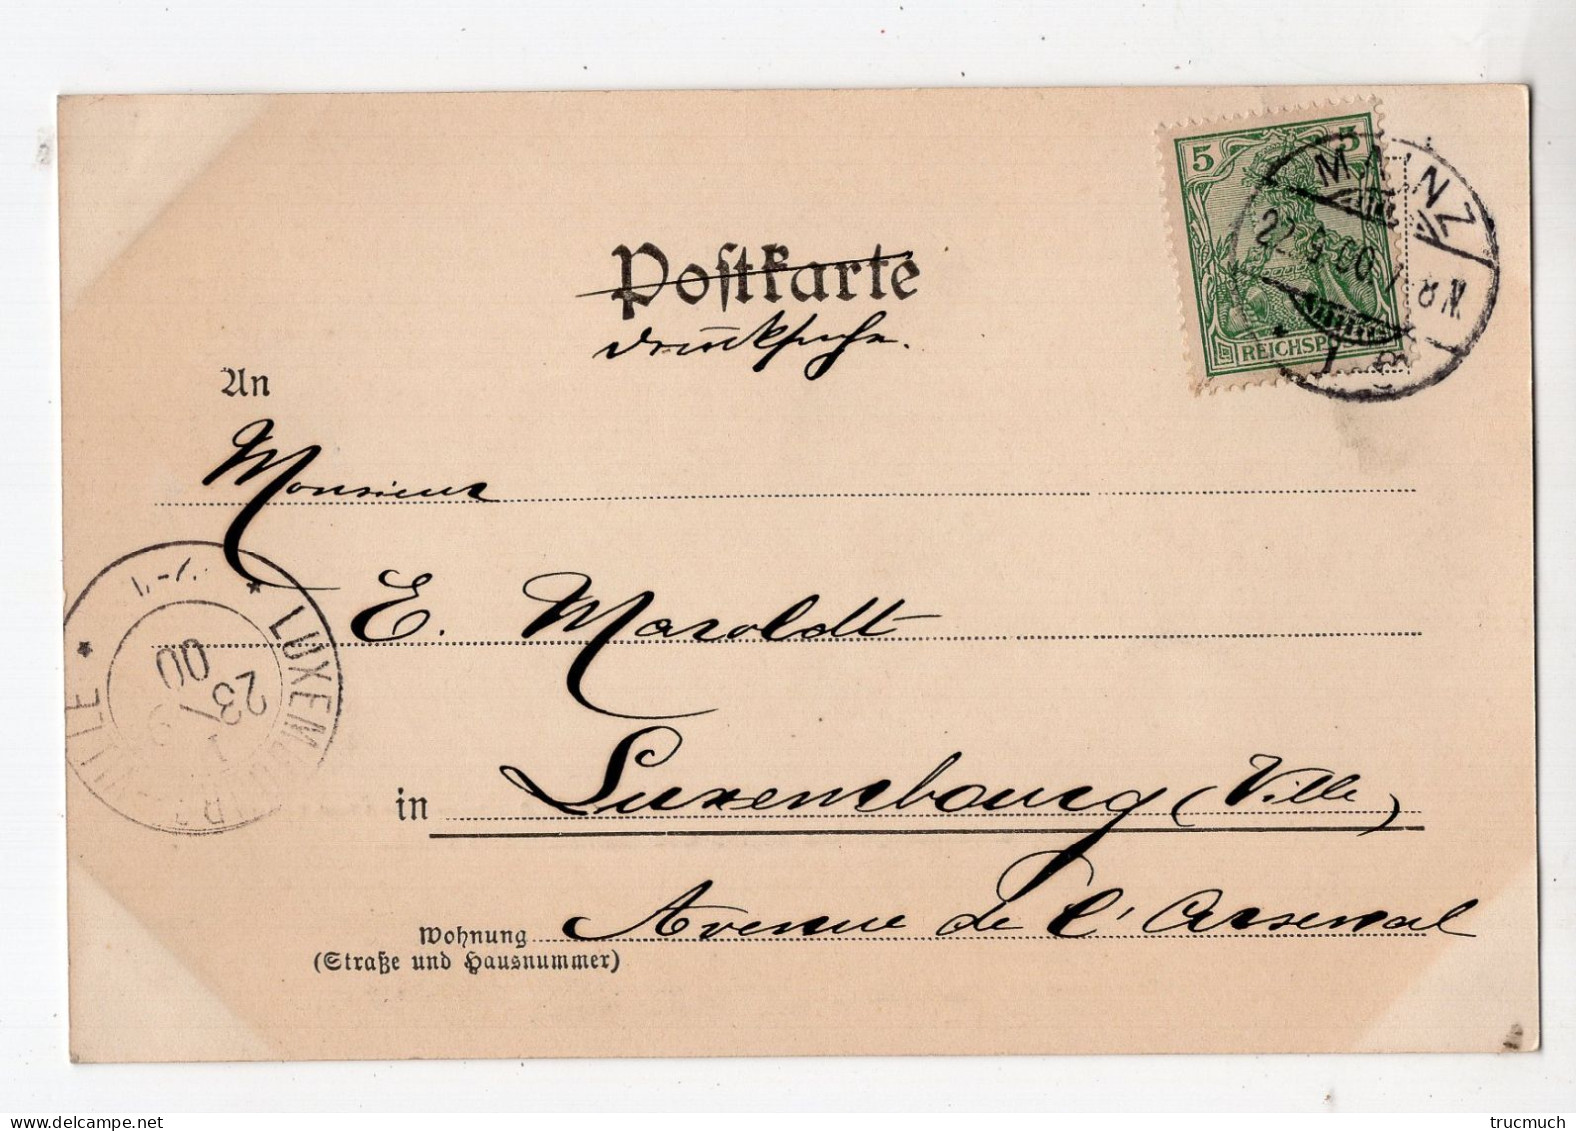 Postkarte
Drucksache.
5 5
REICHSP
MAINZ
22.9.00 7-8N.
1
An
Monsieur
E. Maroldt
in Luxembourg (Ville)
Wohnung Avenue de l'Arsenal
(Straße und Hausnummer)
* LUXEMBOURG-VILLE *
23
9
00
delcampe.net
trucmuch